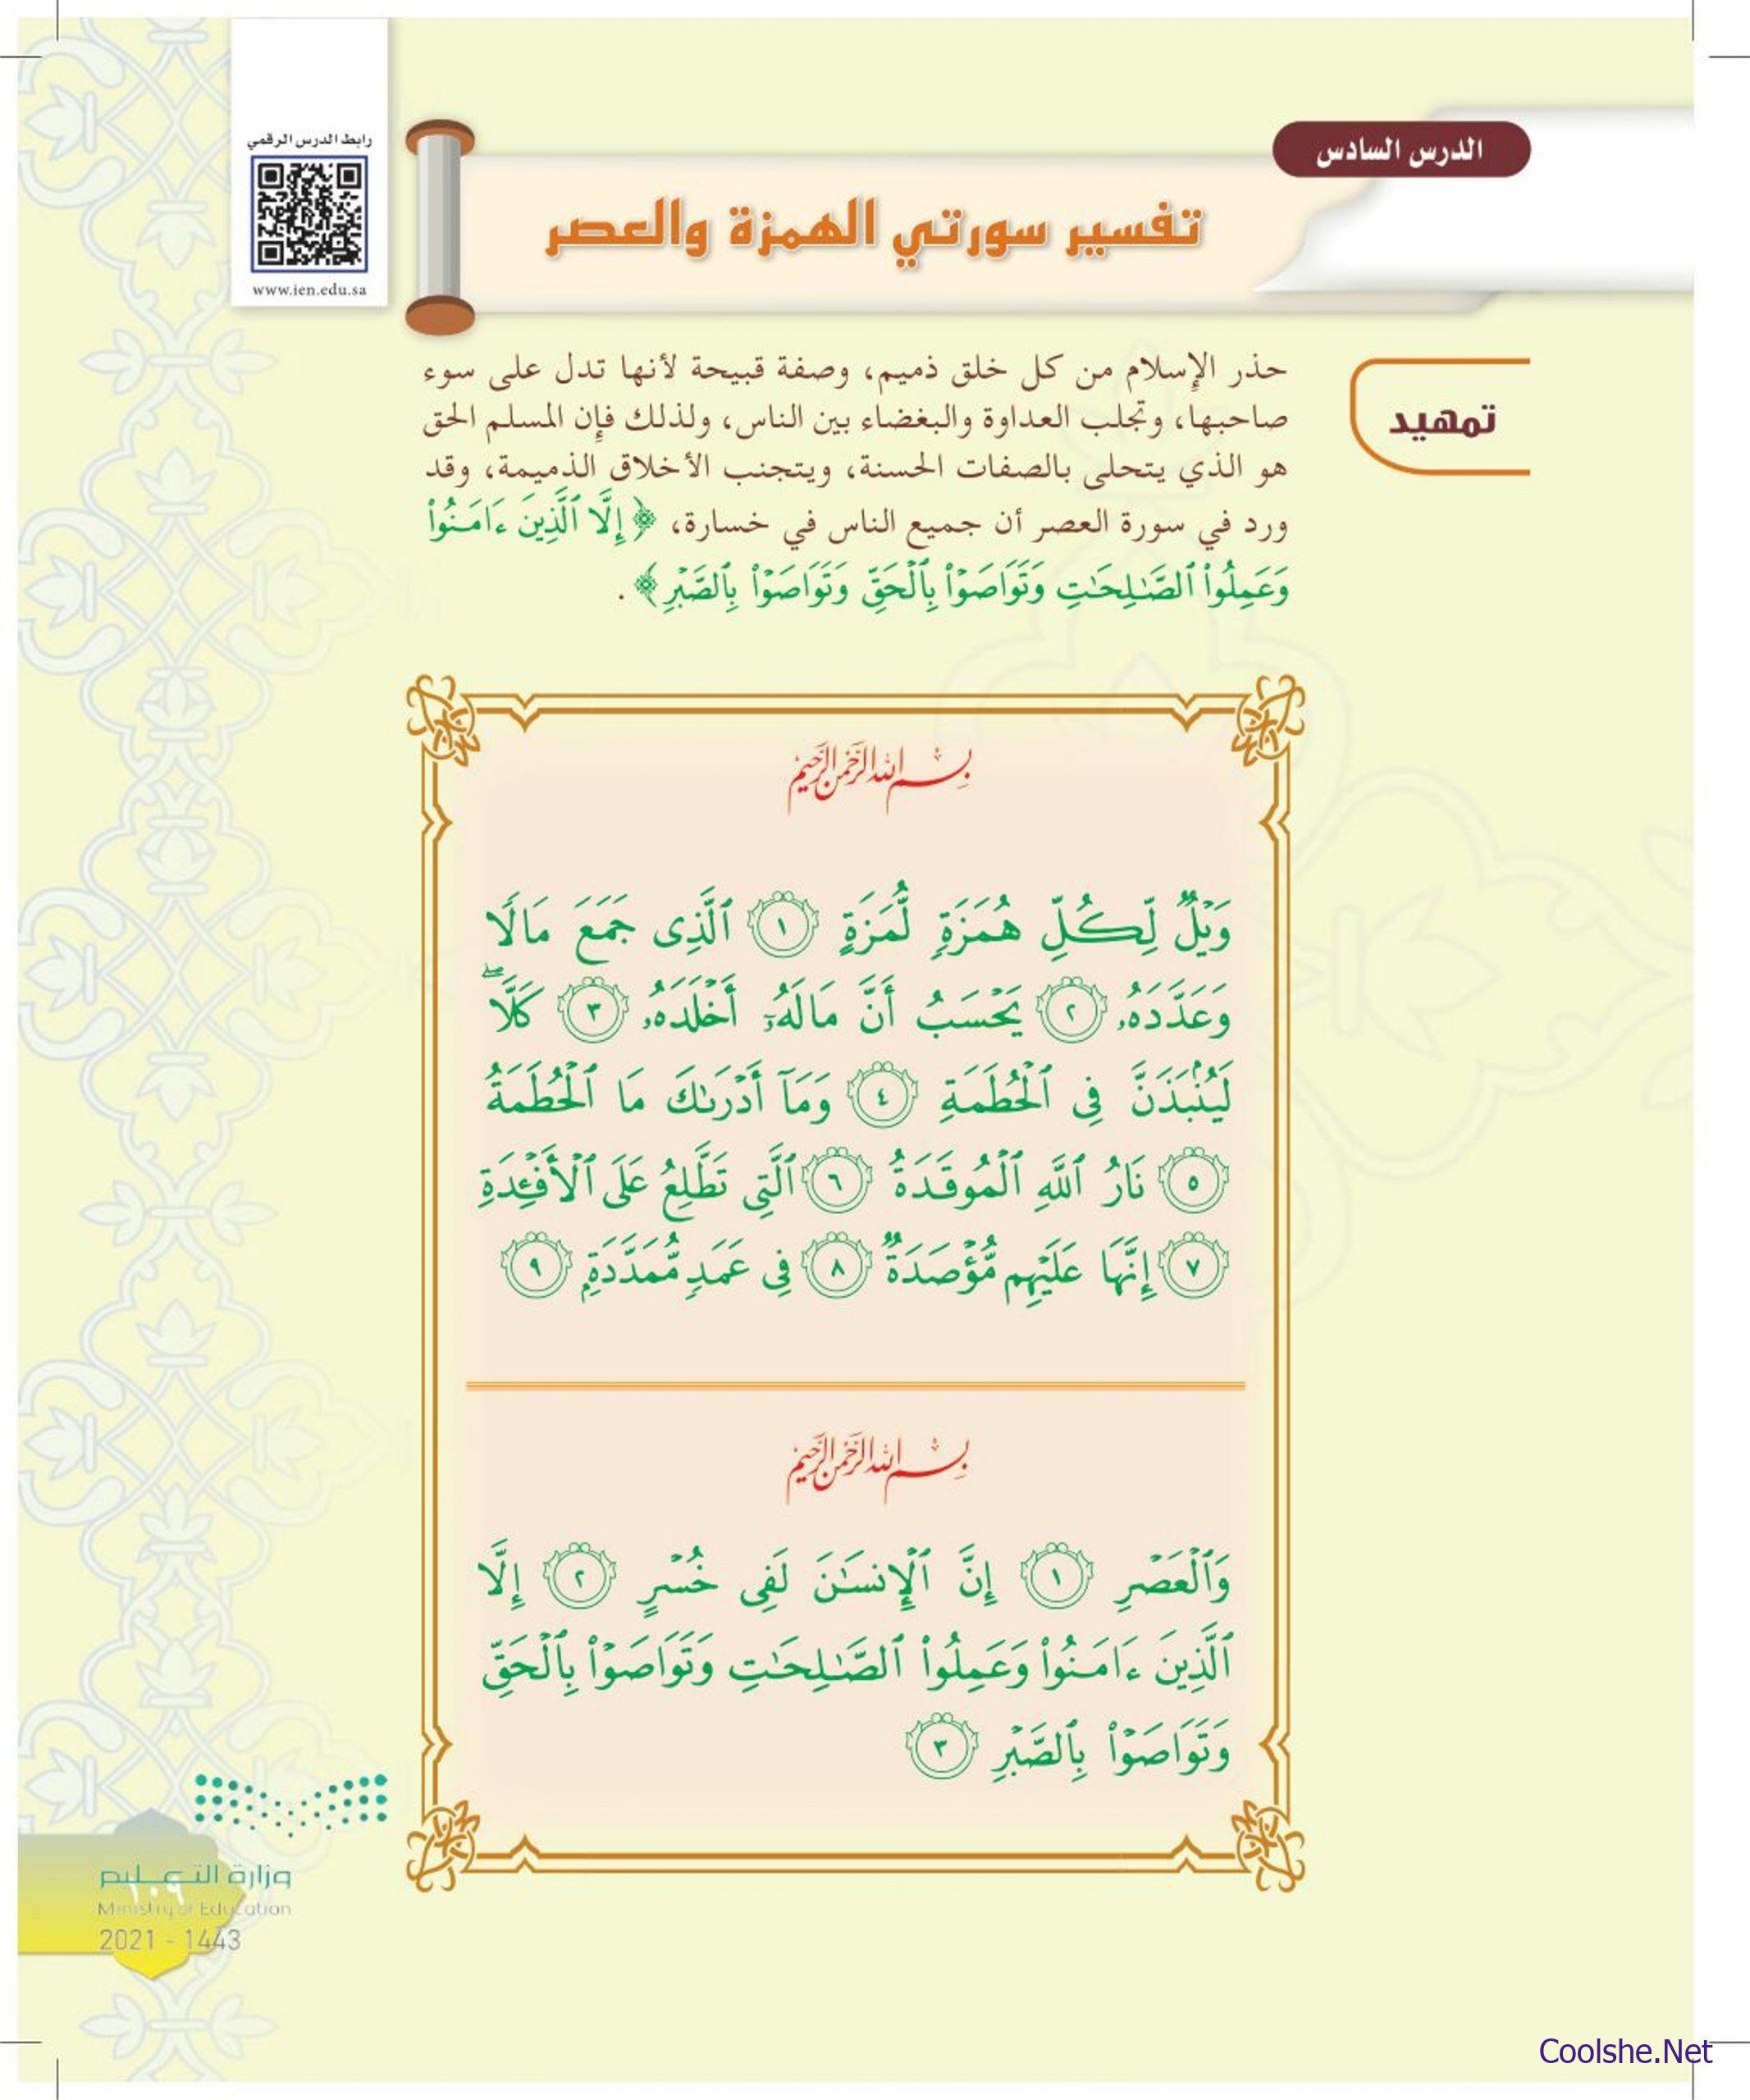 الدرس السادس
رابط الدرس الرقمي
www.ien.edu.sa
تفسير سورتي الهمزة والعصر
تمهيد
حذر الإسلام من كل خلق ذميم، وصفة قبيحة لأنها تدل على سوء
صاحبها، وتجلب العداوة والبغضاء بين الناس، ولذلك فإن المسلم الحق
هو الذي يتحلى بالصفات الحسنة، ويتجنب الأخلاق الذميمة، وقد
ورد في سورة العصر أن جميع الناس في خسارة، ﴿ إِلَّا ٱلَّذِينَ ءَامَنُوا۟
وَعَمِلُوا۟ ٱلصَّـٰلِحَـٰتِ وَتَوَاصَوْا۟ بِٱلْحَقِّ وَتَوَاصَوْا۟ بِٱلصَّبْرِ ﴾ .
بِسْمِ اللهِ الرَّحْمَنِ الرَّحِيمِ
وَيْلٌ لِّكُلِّ هُمَزَةٍ لُّمَزَةٍ ١ ٱلَّذِى جَمَعَ مَالًا
وَعَدَّدَهُۥ ٢ يَحْسَبُ أَنَّ مَالَهُۥٓ أَخْلَدَهُۥ ٣ كَلَّا ۖ
لَيُنۢبَذَنَّ فِى ٱلْحُطَمَةِ ٤ وَمَآ أَدْرَىٰكَ مَا ٱلْحُطَمَةُ
٥ نَارُ ٱللَّهِ ٱلْمُوقَدَةُ ٦ ٱلَّتِى تَطَّلِعُ عَلَى ٱلْأَفْـِٔدَةِ
٧ إِنَّهَا عَلَيْهِم مُّؤْصَدَةٌ ٨ فِى عَمَدٍ مُّمَدَّدَةٍۭ ٩
بِسْمِ اللهِ الرَّحْمَنِ الرَّحِيمِ
وَٱلْعَصْرِ ١ إِنَّ ٱلْإِنسَـٰنَ لَفِى خُسْرٍ ٢ إِلَّا
ٱلَّذِينَ ءَامَنُوا۟ وَعَمِلُوا۟ ٱلصَّـٰلِحَـٰتِ وَتَوَاصَوْا۟ بِٱلْحَقِّ
وَتَوَاصَوْا۟ بِٱلصَّبْرِ ٣
وزارة التعليم
١٠٩
Ministry of Education
2021 - 1443
Coolshe.Net